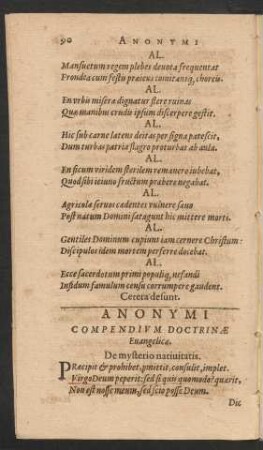 90 ANONYMI
AL.
Mansuetum regem plebes deuota frequentat
Frondea cum festis præeuns comitantq; choreis.
AL.
En vrbis miseræ dignatur flere ruinas
Quæ manibus crudis ipsum discerpere gestit.
AL.
Hic sub carne latens deitas per signa patescit,
Dum turbas patria flagro proturbat ab aula.
AL.
En ficum viridem sterilem remanere iubebat,
Quod sibi ieiuno fructum præbere negabat.
AL.
Agricolæ seruos cædentes vulnere sæuo
Post natum Domini satagunt hic mittere morti.
AL.
Gentiles Dominum cupiunt iam cernere Christum:
Discipulos idem mortem perferre docebat.
AL.
Ecce sacerdotum primi populiq; nefandi
Infidum famulum censu corrumpere gaudent.
Cetera desunt.
ANONYMI
COMPENDIVM DOCTRINÆ
Euangelicæ.
De mysterio natiuitatis.
PRæcipit & prohibet, pmittit, consulit, implet.
Virgo Deum peperit: sed si quis quomodo? quærit,
Non est nosse meum, sed scio posse Deum.
Dic